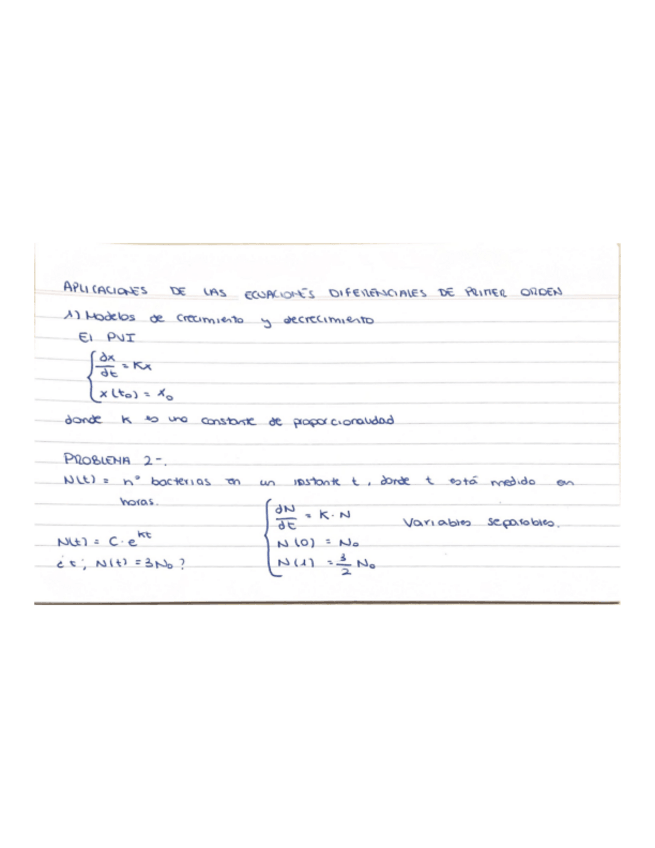 APLICACIONES DE LAS ECUACIONES DIFERENCIALES DE PRIMER ORDEN
1) Modelos de crecimiento y decrecimiento
El PVI
{ dx/dt = Kx
x(t₀) = x₀
donde K es una constante de proporcionalidad
PROBLEMA 2-.
N(t) = nº bacterias en un instante t, donde t está medido en
horas.
{ dN/dt = K·N Variables separables.
N(t) = C·e^kt N(0) = N₀
¿t; N(t) = 3N₀? N(1) = 3/2 N₀